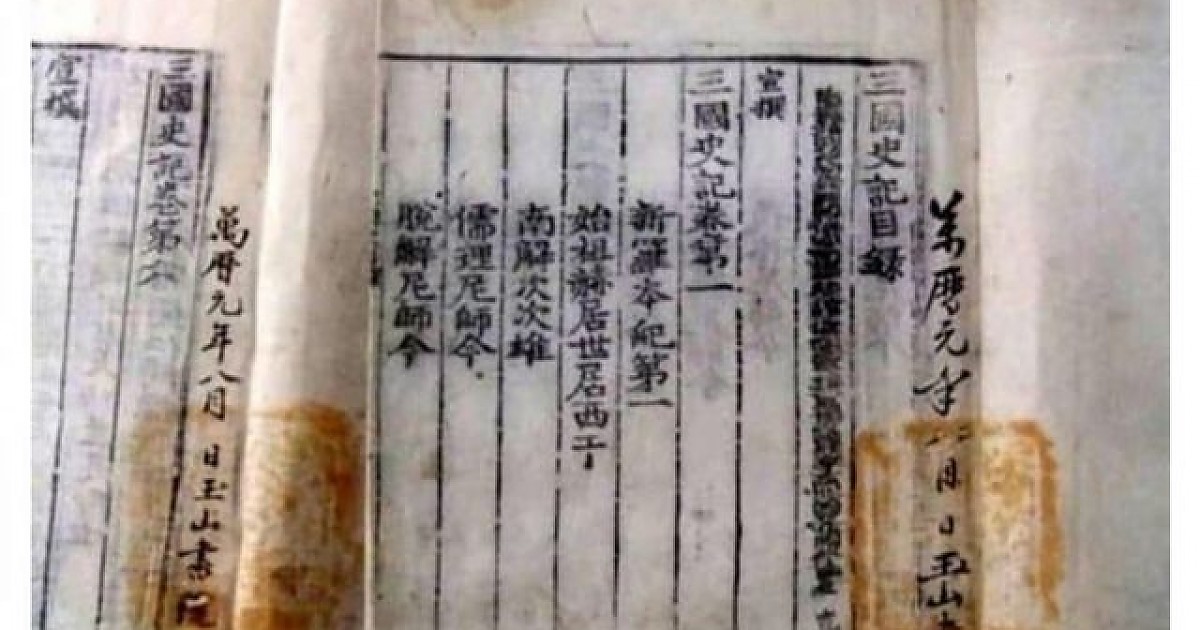 萬曆元年八月 日玉山書
三國史記目錄
宣撰
三國史記卷第一
新羅本紀第一
始祖赫居世居西干
南解次次雄
儒理尼師今
脫解尼師今
萬曆元年八月 日玉山書院
三國史記卷第六
宣撰